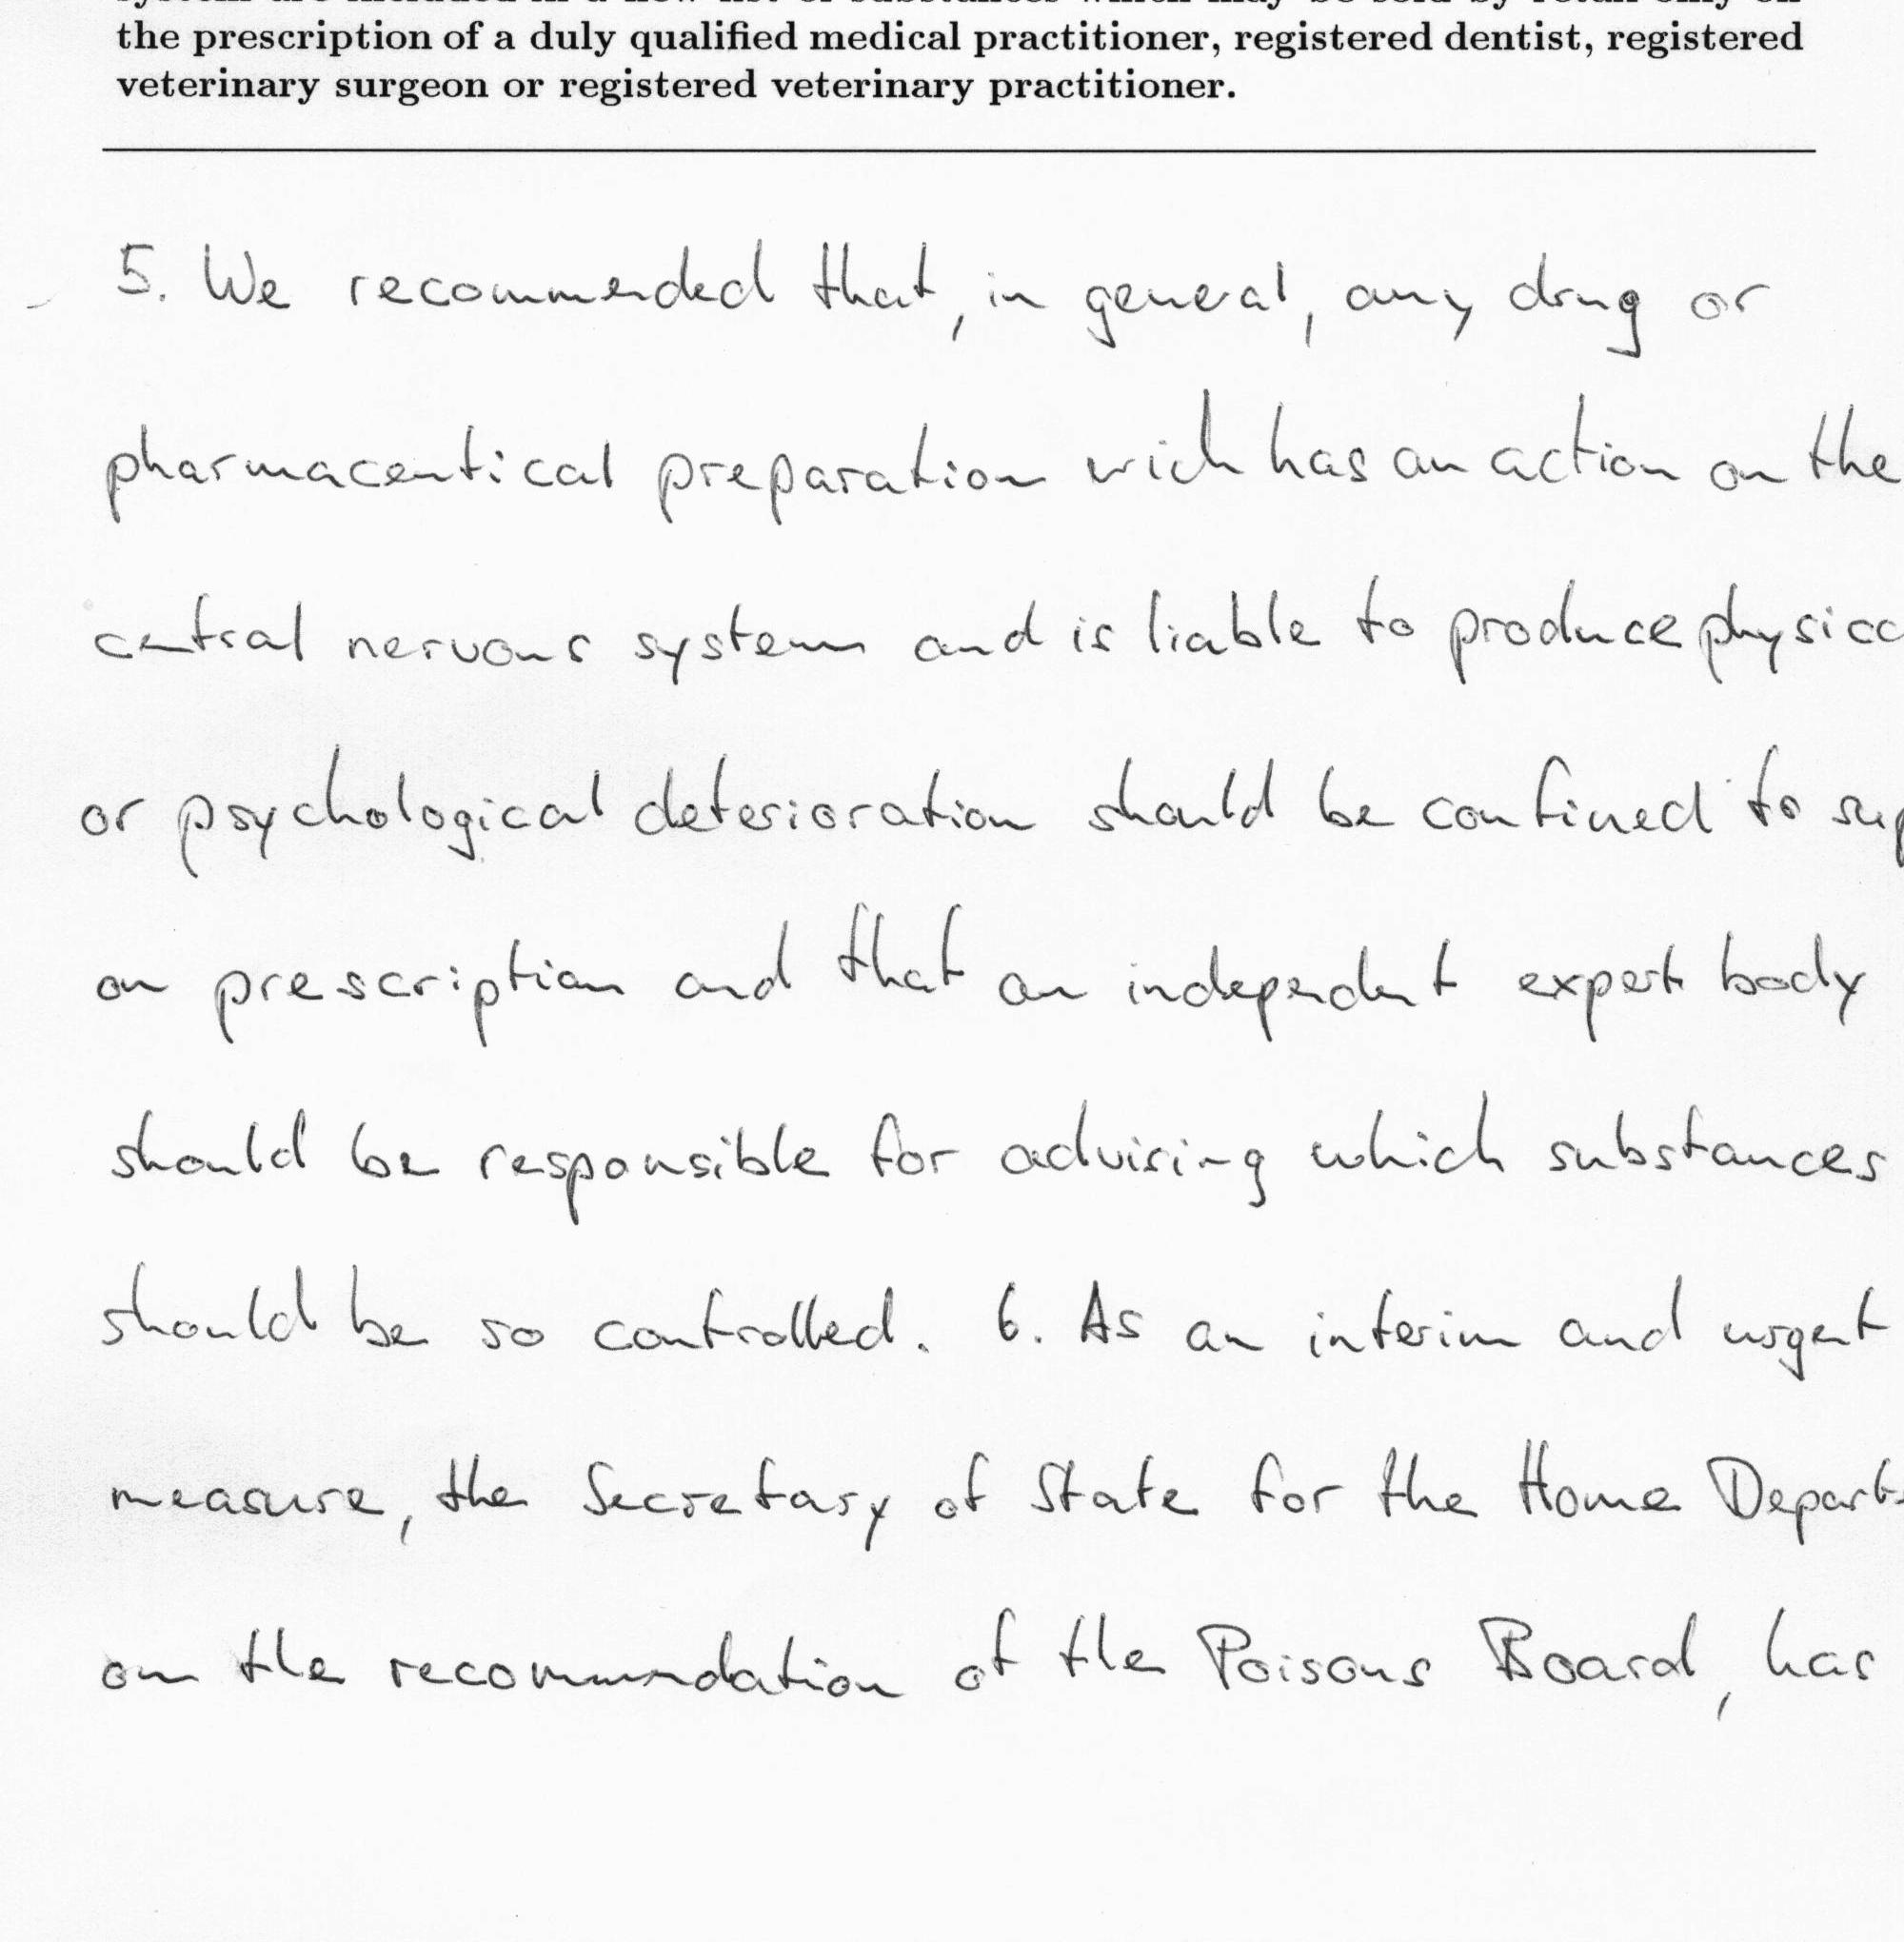 the prescription of a duly qualified medical practitioner, registered dentist, registered
veterinary surgeon or registered veterinary practitioner.
5. We recommended that, in general, any drug or
pharmaceutical preparation wich has an action on the
central nervous system and is liable to produce physica
or psychological deterioration should be confined to sup
on prescription and that an independent expert body
should be responsible for advising which substances
should be so controlled. 6. As an interim and urgent
measure, the Secretary of State for the Home Depart
on the recommendation of the Poisons Board, has